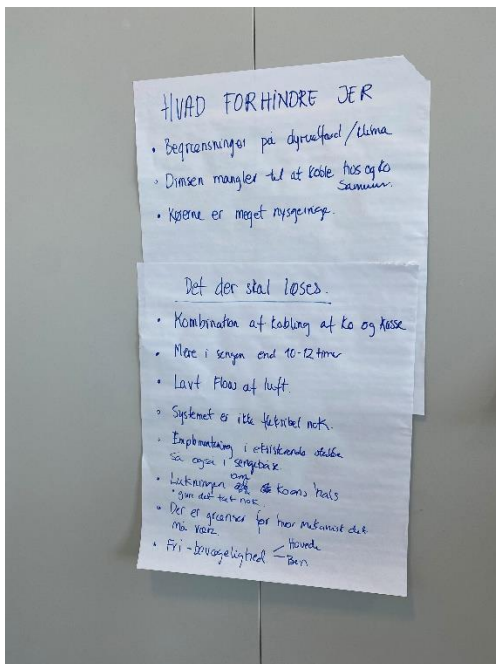 HVAD FORHINDRE JER
• Begrænsninger på dyrvelfærd / klima
• Dimsen mangler til at koble hus og ko
sammen.
• Køerne er meget nysgerrige.
Det der skal løses.
• Kombination af kobling af ko og kasse
• Mere i sengen end 10-12 timer
• Lavt Flow af luft.
• Systemet er ikke fleksibel nok.
• Implementering i eksisterende stalde
så også i sengebåse
• Lukningen om koens hals
• gøre det tæt nok
• Der er grænser for hvor mekanisk det
må være
• Fri-bevægelighed < Hovede
Ben